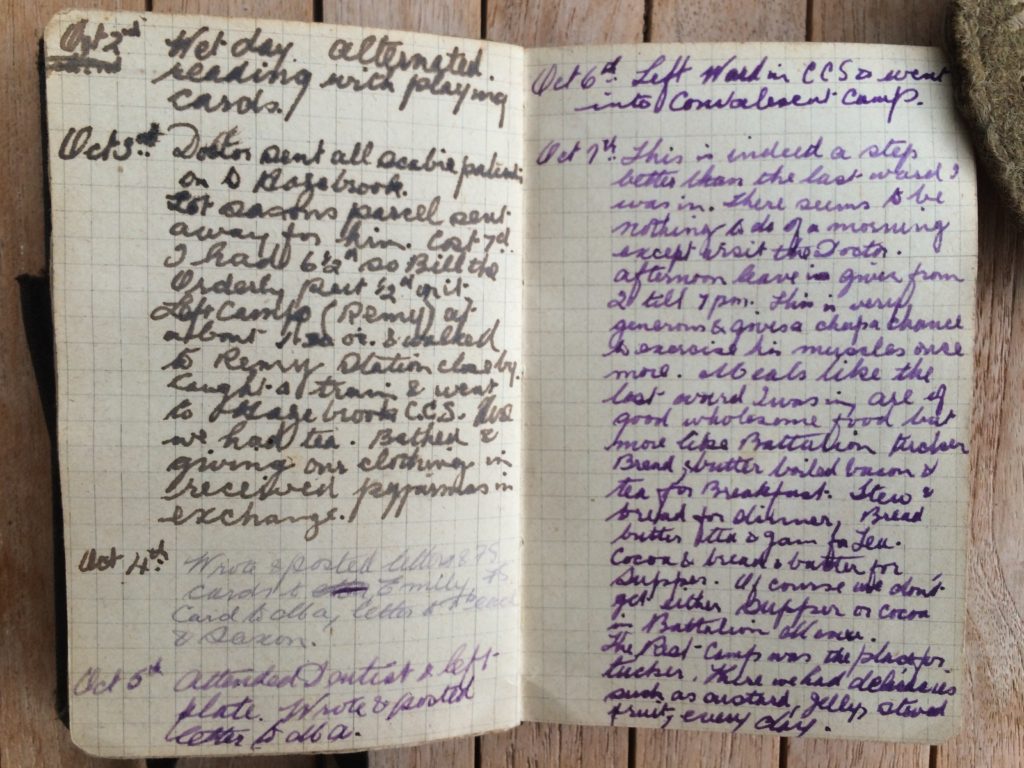 Oct 2nd Wet day alternated.
reading with playing
cards.
Oct 3rd Doctor sent all scabie patients
on to Hazebrook.
Got saxons parcel sent
away for him. Cost 7d.
I had 6½d so Bill the
Orderly put ½d on it
Left Camp (Remy) at
about & walked
to Remy Station close by.
Caught a train & went
to Hazebrook C.C.S.
we had tea. Bathed &
giving our clothing in
received pyjarmas in
exchange.
Oct 4th Wrote & posted letters &
cards to Emily,
Card to Ma, letter to
& Saxon.
Oct 5th Attended Dentist & left
plate. Wrote & posted
letter to Ma.
Oct 6th Left Ward in CCS & went
into Convalescent Camp.
Oct 7th This is indeed a step
better than the last ward I
was in. There seems to be
nothing to do of a morning
except visit the Doctor.
afternoon leave is given from
2 till 7 pm. This is very
generous & gives a chap a chance
to exercise his muscles once
more. Meals like the
last ward I was in, are of
good wholesome food but
more like Battalion tucker
Bread & butter boiled bacon &
tea for Breakfast. Stew &
bread for dinner, Bread
butter tea & jam for Tea.
Cocoa & bread & butter for
Supper. Of course we don't
get either Supper or cocoa
in Battalion
The Rest Camp was the place for
tucker. There we had delicacies
such as custard, jelly, stewed
fruit, every day.